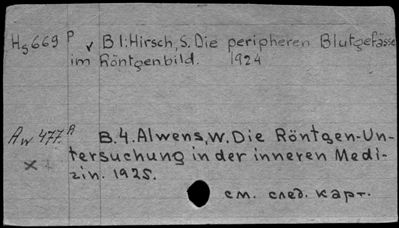 Hg669 P v B 1:Hirsch, S. Die peripheren Blutgefässe
im Röntgenbild. 1924
Aw 477. A B.4. Alwens, W. Die Röntgen-Un-
tersuchung in der inneren Medi-
zin. 1925.
см. след. карт.